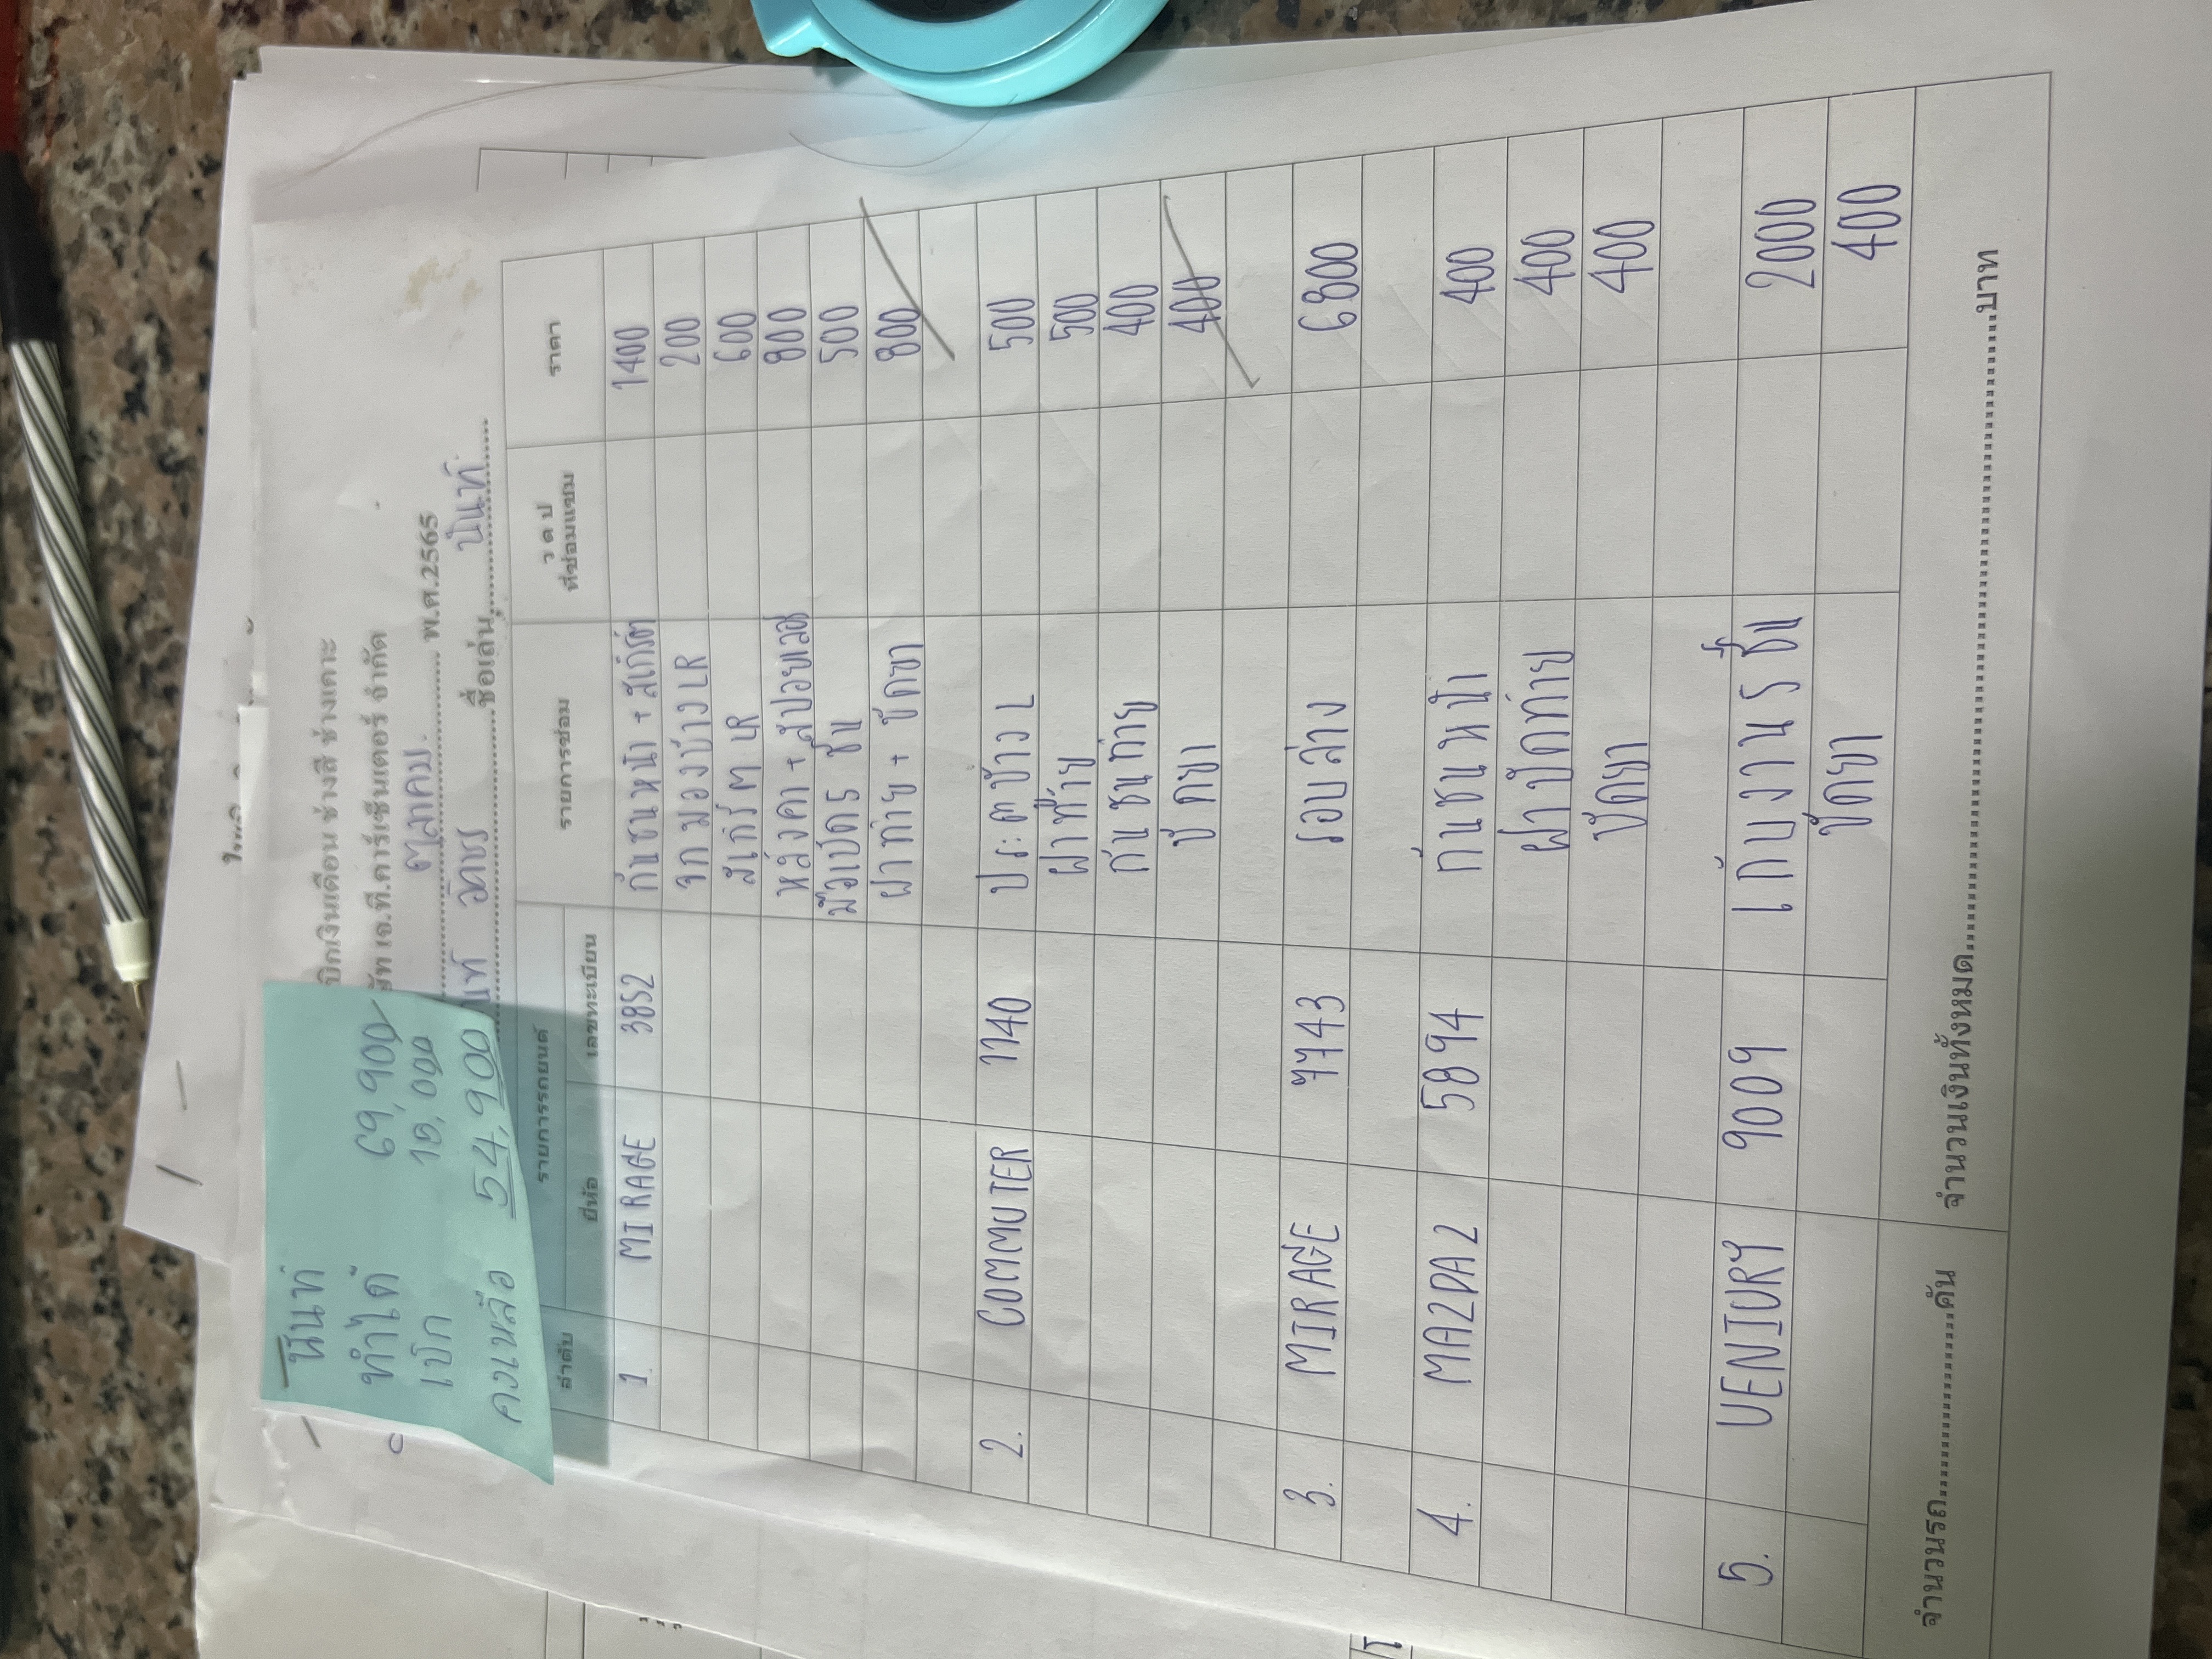 นันท์
ทำได้ 69,900
เบิก 15,000
คงเหลือ 54,900
บิกเงินเดือน ช่างสี ช่างเคาะ
ษัท เจ.ที.คาร์เซ็นเตอร์ จำกัด
ตุลาคม. พ.ศ.2565
ชื่อเล่น นันท์
ลำดับ รายการรถยนต์ รายการซ่อม ว ด ป ที่ซ่อมแซม ราคา
ยี่ห้อ เลขทะเบียน
1. MIRAGE 3852 กันชนหน้า + สเกิร์ต 1400
จก มองข้าง LR 200
สเกิร์ต LR 600
หลังคา + สปอยเลอ 800
มือเปิด 5 ชิ้น 500
ฝาท้าย + ขัดยา 800
2. COMMUTER 1140 ประตูข้าง L 500
ฝาท้าย 500
กันชนท้าย 400
ขัดยา 400
3. MIRAGE 7743 รอบล่าง 6800
4. MAZDA 2 5894 กันชนหน้า 400
ฝาปิดท้าย 400
ขัดยา 400
5. VENTURY 9009 เก็บงาน 5 ชิ้น 2000
ขัดยา 400
จำนวนรถ....................คัน จำนวนเงินทั้งหมด....................บาท